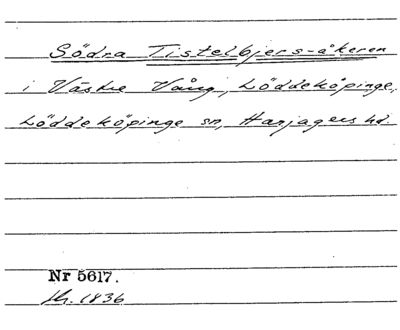 Södra Tistelbjers-åkeren
i Västre Vång, Löddeköpinge,
Löddeköpinge sn, Harjagers hd.
Nr 5617.
1836